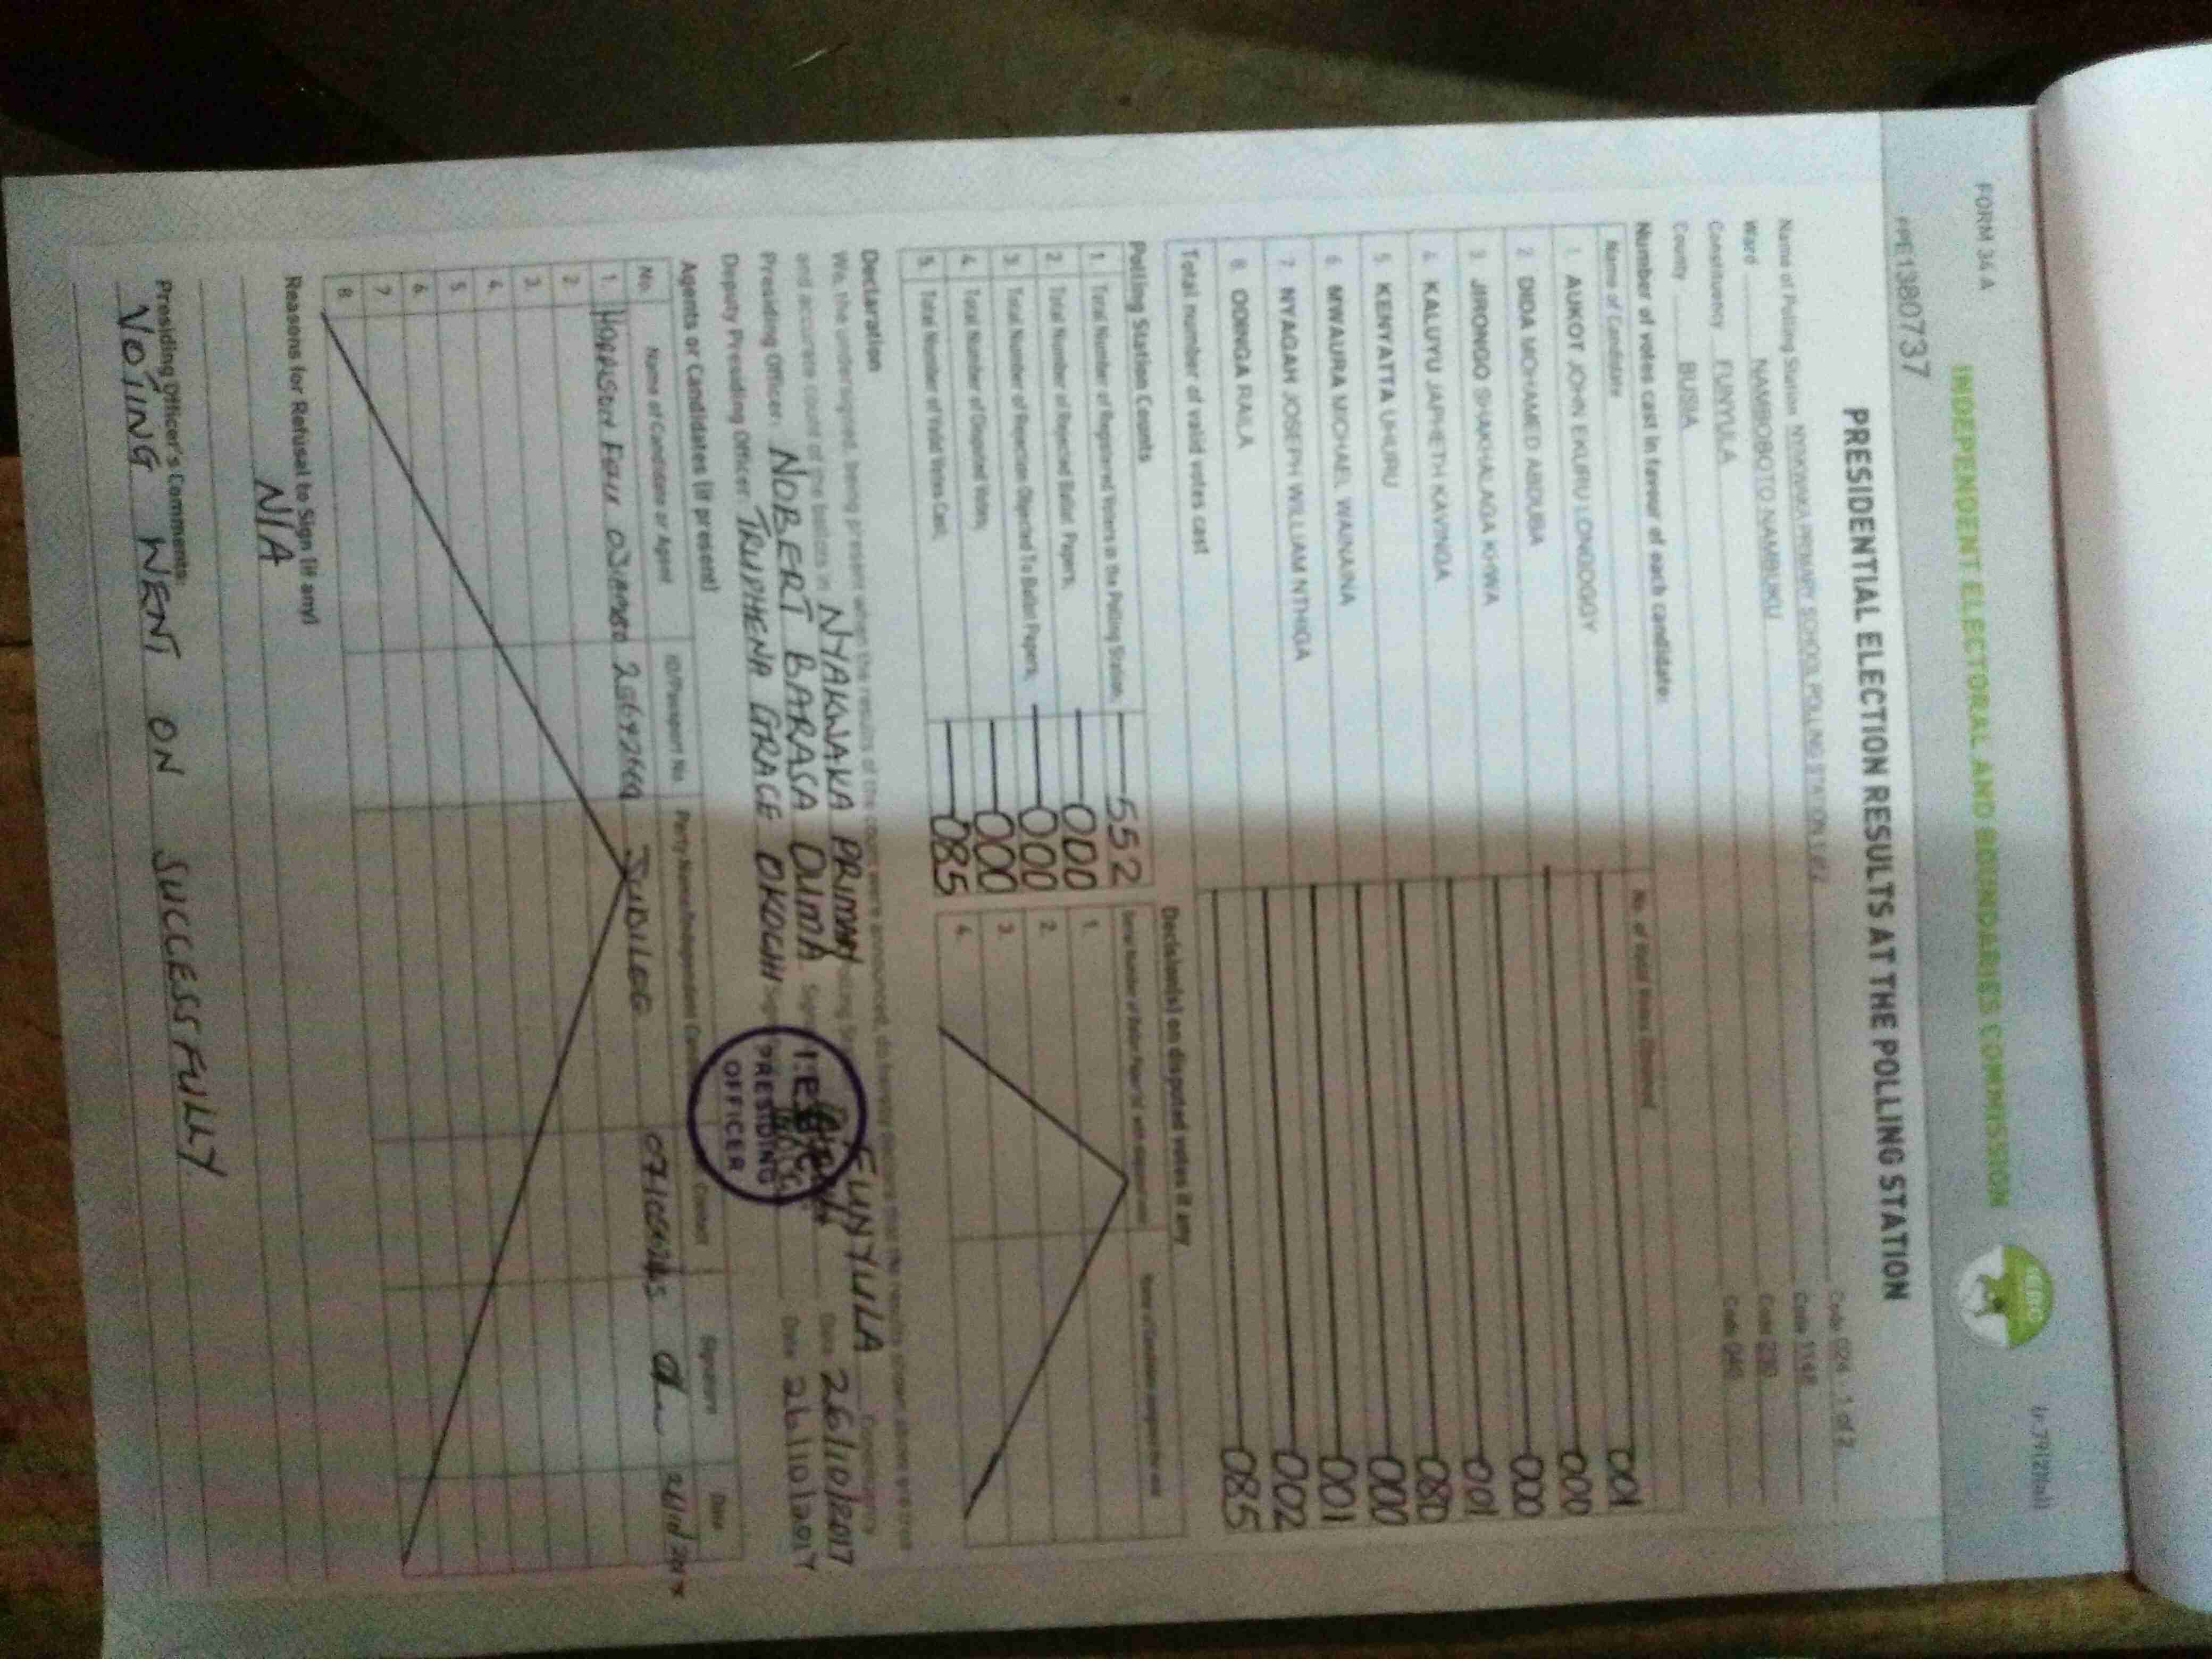 FORM 34A
INDEPENDENT ELECTORAL AND BOUNDARIES COMMISSION
IEBC
PRESIDENTIAL ELECTION RESULTS AT THE POLLING STATION
Name of Polling Station NYAKWAKA PRIMARY SCHOOL POLLING STATION 1 of 2 Code 024 - 1 of 2
Ward NAMBOBOTO NAMBUKU Code 1148
Constituency FUNYULA Code 230
County BUSIA Code 040
Number of votes cast in favour of each candidate:
Name of Candidate No. of Valid Votes Obtained
1. AUKOT JOHN EKURU LONGOGGY 001
2. DIDA MOHAMED ABDUBA 000
3. JIRONGO SHAKHALAGA KHWA 000
4. KALUYU JAPHETH KAVINGA 001
5. KENYATTA UHURU 080
6. MWAURA MICHAEL WAINAINA 000
7. NYAGAH JOSEPH WILLIAM NTHIGA 001
8. ODINGA RAILA 002
Total number of valid votes cast 085
Polling Station Counts
1. Total Number of Registered Voters in the Polling Station 552
2. Total Number of Rejected Ballot Papers 000
3. Total Number of Rejection Objected To Ballot Papers 000
4. Total Number of Disputed Votes 000
5. Total Number of Valid Votes Cast 085
Decision(s) on disputed votes if any
1.
2.
3.
4.
Declaration
We, the undersigned, being present when the results of the count were announced, do hereby declare that the results shown above are true
and accurate count of the ballots in NYAKWAKA PRIMARY Polling FUNYULA Constituency
Presiding Officer: NOBERT BARASA OUMA Date 26/10/2017
Deputy Presiding Officer TRUPHENA GRACE OKOCHI Date 26/10/2017
PRESIDING
OFFICER
Agents or Candidates (if present)
No. Name of Candidate or Agent ID/Passport No. Contact Signature Date
1. OJIAMBO JUBILEE
2.
3.
4.
5.
6.
7.
8.
Reasons for Refusal to Sign (if any)
N/A
Presiding Officer's Comments:
VOTING WENT ON SUCCESSFULLY